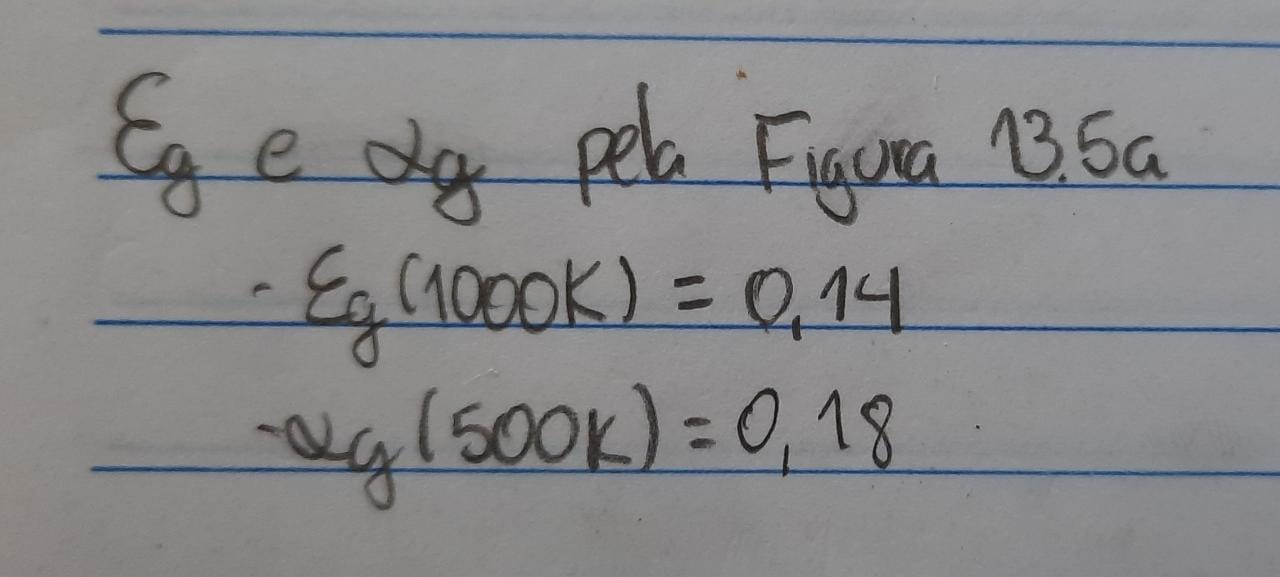 Eg e αg pela Figura 13.5a
- Eg (1000K) = 0,14
- αg (500K) = 0,18